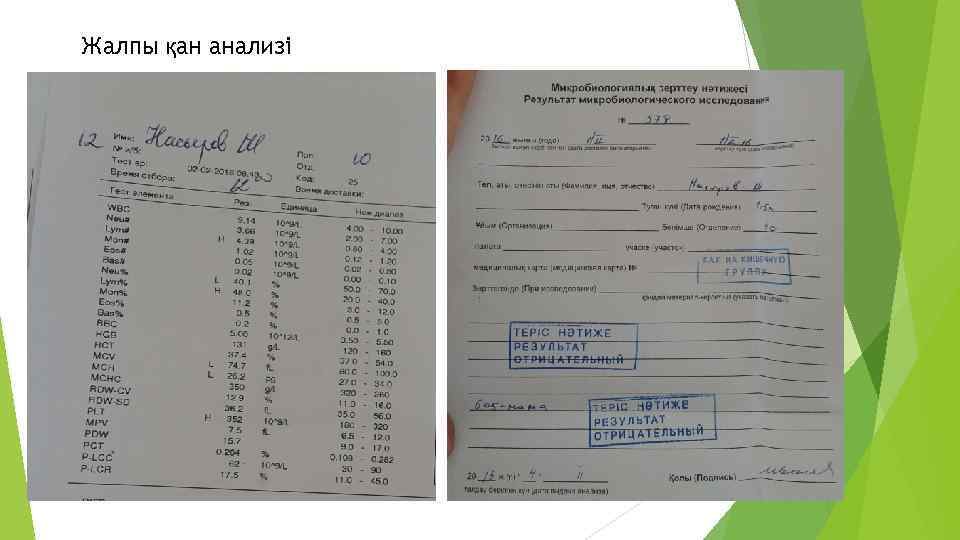 Жалпы қан анализі
12 Имя: Насыров Ш
№ и/б: Пол:
Тест вр: 02-02-2016 Отд: 10
Время отбора: Код: 25
Время доставки:
Тест элемента Рез. Единица Нож диапаз
WBC 9.14 10^9/L 4.00 - 10.00
Neu# 3.66 10^9/L 2.00 - 7.00
Lym# H 4.39 10^9/L 0.80 - 4.00
Mon# 1.02 10^9/L 0.12 - 1.20
Eos# 0.05 10^9/L 0.02 - 0.80
Bas# 0.02 10^9/L 0.00 - 0.10
Neu% L 40.1 % 50.0 - 70.0
Lym% H 48.0 % 20.0 - 40.0
Mon% 11.2 % 3.0 - 12.0
Eos% 0.5 % 0.5 - 5.0
Bas% 0.2 % 0.0 - 1.0
RBC 5.00 10^12/L 3.50 - 5.50
HGB 131 g/L 120 - 160
HCT 37.4 % 37.0 - 54.0
MCV L 74.7 fL 80.0 - 100.0
MCH L 26.2 pg 27.0 - 34.0
MCHC 350 g/L 320 - 360
RDW-CV 12.9 % 11.0 - 16.0
RDW-SD 36.2 fL 35.0 - 56.0
PLT H 352 10^9/L 180 - 320
MPV 7.5 fL 6.5 - 12.0
PDW 15.7 9.0 - 17.0
PCT 0.264 % 0.108 - 0.282
P-LCC 62 10^9/L 30 - 90
P-LCR 17.5 % 11.0 - 45.0
Микробиологиялық зерттеу нәтижесі
Результат микробиологического исследования
№ 378
20 16 жылғы (года)
Тегі, аты, әкесінің аты (Фамилия, имя, отчество) Насыров Ш
Туған күні (Дата рождения)
Ұйым (Организация) Бөлімше (Отделение) 10
палата участке (участок)
медициналық карта (медицинская карта) №
КАЛ НА КИШЕЧНУЮ
ГРУППУ
Зерттегенде (При исследовании)
ТЕРІС НӘТИЖЕ
РЕЗУЛЬТАТ
ОТРИЦАТЕЛЬНЫЙ
бак-мама
ТЕРІС НӘТИЖЕ
РЕЗУЛЬТАТ
ОТРИЦАТЕЛЬНЫЙ
Қолы (Подпись)
талдау берілген күн (дата выдачи анализа)